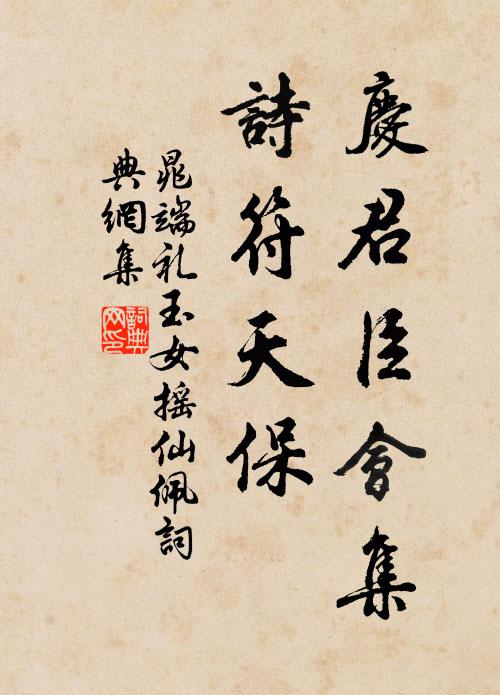 慶君臣會集
詩符天保
晁端礼玉女摇仙佩詞
典網集
詞典网印